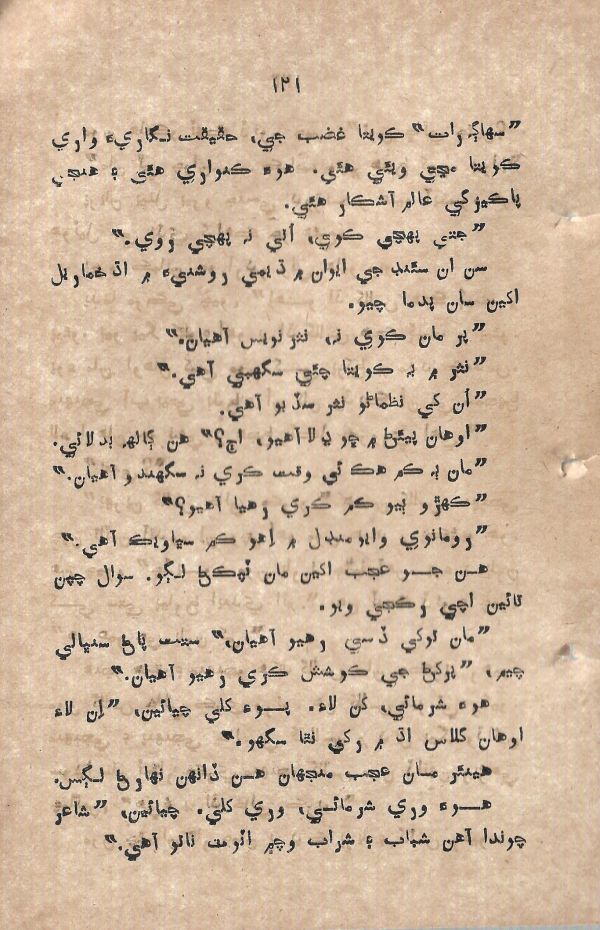 ١٢١
”سهاڳ رات“ ڪويتا غضب جي، حقيقت نگاريءَ واري
ڪويتا مڃي ويئي هئي. هوءَ ڪنواري هئي ۽ هنجي
پاڪيزگي عالم آشڪار هئي.
”جتي پهچي ڪوي، اُتي نہ پهچي روي.“
سن ان سئند جي ايوان ۾ ڌيمي روشنيءَ ۾ اڌ خماريل
اکين سان پدما چيو.
”پر مان ڪوي نہ، نثر نويس آهيان.“
”نثر ۾ بہ ڪويتا چئي سگهبي آهي.“
”اُن کي نظماڻو نثر سڏبو آهي.
”اوهان پيئڻ ۾ ڇو ڍلا آهيو، اڄ؟“ هن ڳالهہ بدلائي.
”مان ٻہ ڪم هڪ ئي وقت ڪري نہ سگهندو آهيان.“
”ڪهڙو ٻيو ڪم ڪري رهيا آهيو؟“
”رومانوي وايو منڊل ۾ اِهو ڪم سڀاويڪ آهي.“
هن جسو عجب اکين مان ٽپڪڻ لڳو. سوال چپن
تائين اچي رڪجي ويو.
”مان توکي ڏسي رهيو آهيان،“ سٽت پاڻ سنڀالي
چيم، ”پرکڻ جي ڪوشش ڪري رهيو آهيان.“
هوءَ شرمائي، کن لاءِ. پوءِ کلي چيائين، ”اِن لاءِ
اوهان گلاس اڌ ۾ رکي نٿا سگهو.“
هينئر مسان عجب منجهان هن ڏانهن نهارڻ لڳس.
هوءَ وري شرمائي، وري کلي. چيائين، ”شاعر
چوندا آهن شباب ۽ شراب وچ ۾ اڻ ٽٽ ناتو آهي.“